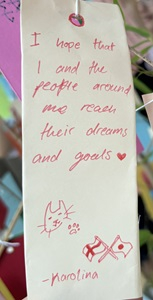 I hope that
I and the
people around
me reach
their dreams
and goals ♥
-Karolina